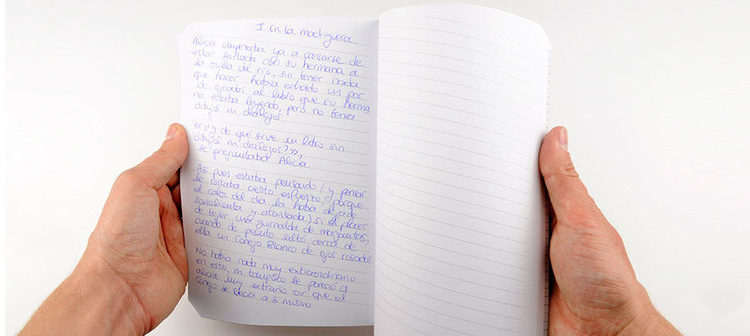 I En la madriguera.
Alicia empezaba ya a cansarse de
estar sentada con su hermana a
la orilla del río, sin tener nada
que hacer: había echado un par
de ojeadas al libro que su herma
na estaba leyendo, pero no tenía
dibujos ni diálogos.
«¿y de qué sirve un libro sin
dibujos ni diálogos?»,
se preguntaba Alicia.
Así pues, estaba pensando (y pensar
le costaba cierto esfuerzo, porque
el calor del día la había dejado
soñolienta y atontada) si el placer
de tejer una guirnalda de margaritas,
cuando de pronto saltó cerca de
ella un Conejo Blanco de ojos rosados.
No había nada muy extraordinario
en esto, ni tampoco le pareció a
Alicia muy extraño oír que el
conejo se decía a sí mismo